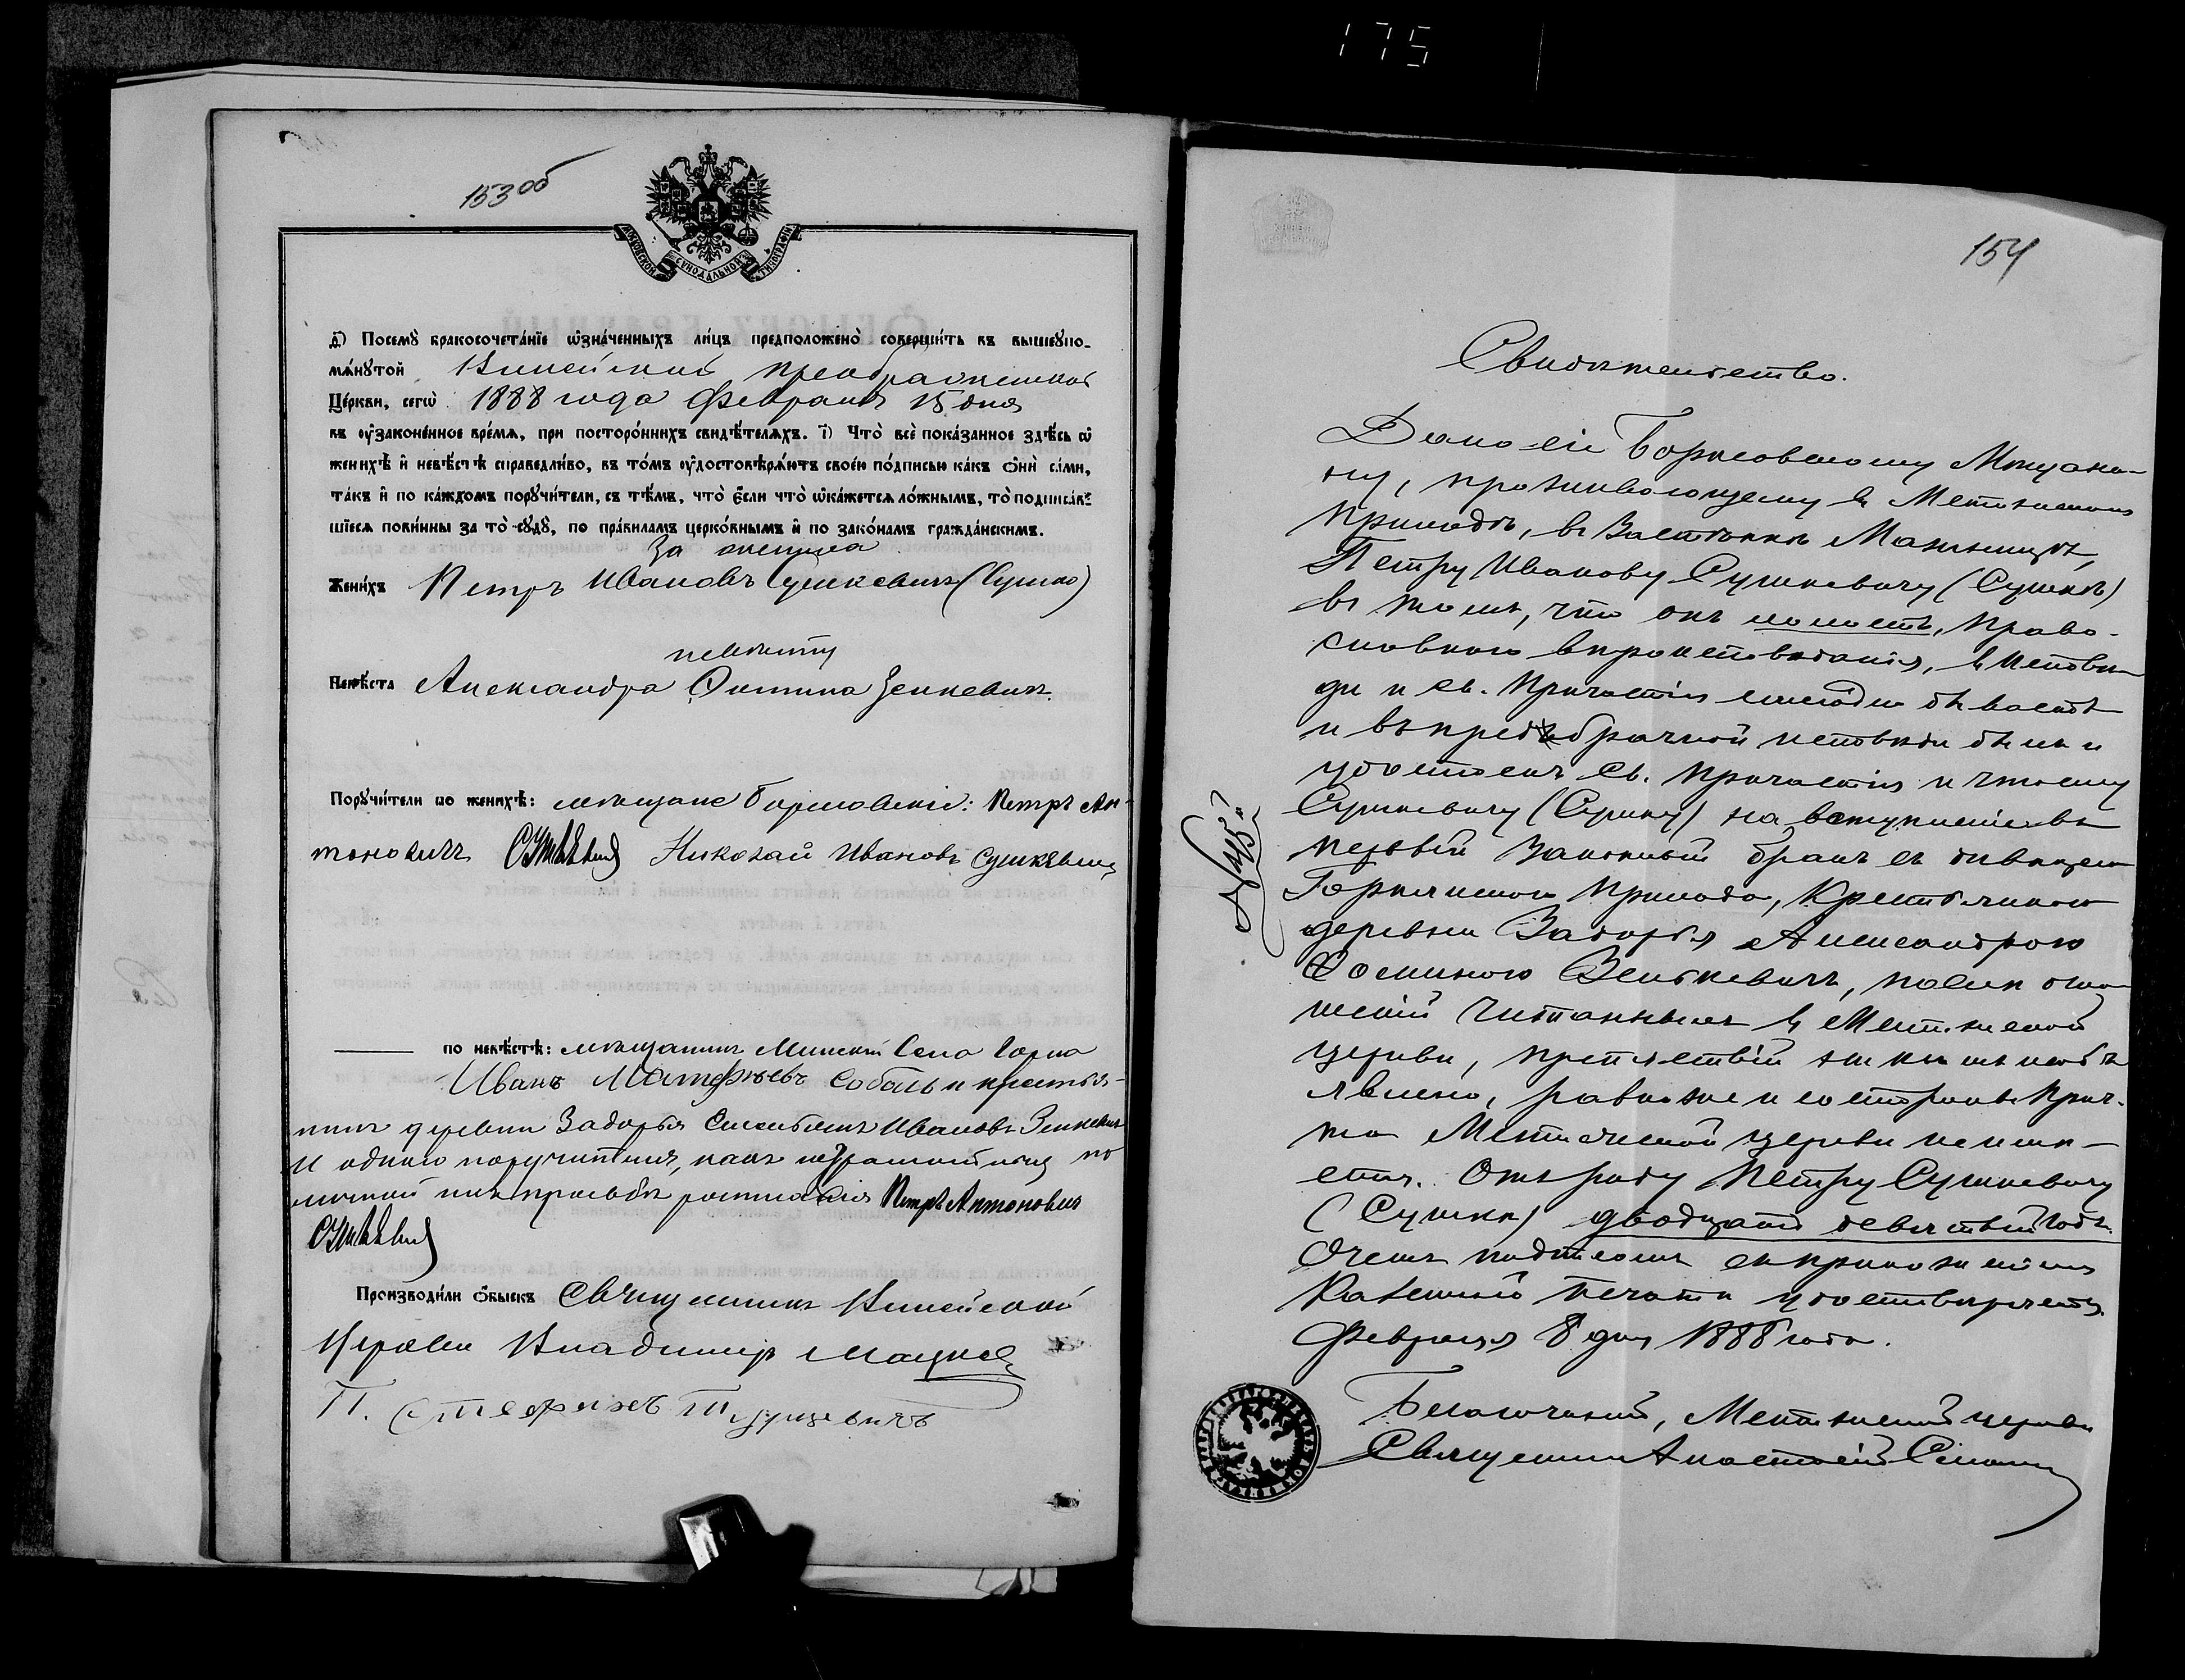 175
153 об
МОСКОВСКОЙ СѴНОДАЛЬНОЙ ТИПОГРАФІИ
д҃) Посемꙋ̀ бракосочета́нїе ѡ҆зна́ченныхъ ли́цъ предположено̀ соверши́ть въ вышеꙋпо-
мѧ́нꙋтой Преображенской
Це́ркви, сегѡ̀ 1888 года Февраля 15 дня
въ ᲂу҆зако́ненное вре́мѧ, при посторо́ннихъ свидѣ́телѧхъ. і҃) Что̀ всѐ пока́занное здѣ́сь ѡ҆
женихѣ̀ и҆ невѣ́стѣ справедли́во, въ то́мъ ᲂу҆достовѣрѧ́ютъ свое́ю по́дписью ка́къ ѻ҆нѝ са́ми,
та́къ и҆ по ка́ждомъ порꙋчи́тели, съ тѣ́мъ, что̀ е҆́сли что̀ ѡ҆ка́жется ло́жнымъ, то̀ подписа́в-
шїесѧ пови́нны за то̀ сꙋдꙋ̀, по пра́виламъ церко́внымъ и҆ по зако́намъ гражда́нскимъ.
За жениха
Жени́хъ Петръ Ивановъ Сушкевичъ (Сушко)
невѣсту
Невѣ́ста Александра Фомина Зенкевичъ
Порꙋчи́тели по женихѣ̀: мѣщане Борисовскіе: Петръ Ан-
тоновичъ Сушкевичъ Николай Ивановъ Сушкевичъ
по невѣ́стѣ: мѣщанинъ Минскій Села
Иванъ Матфѣевъ Соболь и крестья-
нинъ деревни Задорья Ивановъ Зенкевичъ
И одного поручителя, какъ неграмотнаго по
личной ихъ просьбѣ росписался Петръ Антоновичъ
Сушкевичъ
Производи́ли ѻ҆́быскъ Священникъ
Церкви Владимиръ
П. Стефанъ Турцевичъ
154
Свидѣтельство.
Дано сіе Борисовскому Мѣщани-
ну, проживающему въ
приходѣ, въ Застѣнкѣ
Петру Иванову Сушкевичу (Сушкѣ)
въ томъ, что онъ холостъ, право-
славнаго вѣроисповѣданія, въ исповѣ-
ди и св. Причастія ежегодно бываетъ
и въ предъбрачной исповѣди былъ и
удостоенъ св. Причастія и что ему
Сушкевичу (Сушку) на вступленіе въ
первый Законный бракъ съ дѣвицею
прихода, Крестьянкою
деревни Задорья Александрою
Фоминою Зенькевичъ, по
читаннымъ въ
церкви, препятствій никѣмъ необъ-
явлено, равно же и со стороны Прич-
та церкви неимѣ-
ется. Отъ роду Петру Сушкевичу
(Сушки) двадцать девятый годъ.
О чемъ подписомъ съ приложеніемъ
Казенной Печати удостовѣряетъ.
Февраля 8 дня 1888 года.
Благочинный, церкви
Священникъ